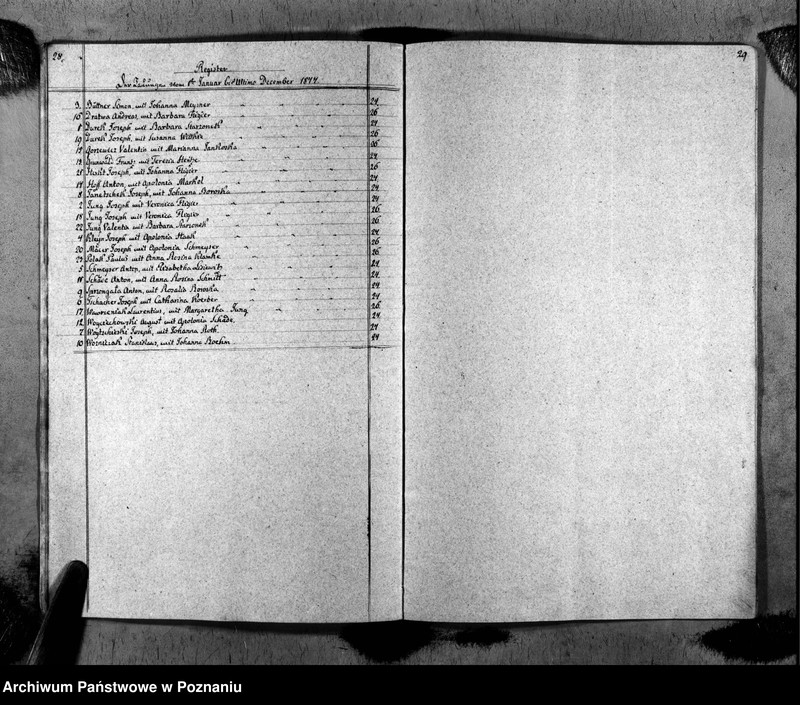 28.
29
Register
der Trauungen vom 1t Januar bis ultimo December 1844
3. Büttner Simon, mit Johanna Meyzner 24
16 Dratwa Andreas, mit Barbara Flegier 26
8 Durek Joseph mit Barbara 24
19 Durek Joseph, mit Susanna 26
12 Gorzewicz Valentin mit Marianna Jankoska
13 Franz mit Teresia
21 Joseph, mit Johanna Flegier
14 Hoff Anton, mit Apolonia Markol 24
8 Joseph, mit Johanna Boroska 24
2 Jung Joseph mit Veronica Flegier 24
18 Jung Joseph mit Veronica Flegier 26
22 Jung Valentin mit Barbara 26
4 Kleyn Joseph mit Apolonia Haak 24
20 Maier Joseph mit Apolonia Schmeyser 26
23 Polak Paulus mit Anna Rosina Klamke 26
5 Schmeyser Anton, mit Elisabetha 24
11 Anton, mit Anna Rosina Schmitt 24
9 Sprzengala Anton, mit Rosalia Boroska 24
6 Tschacher Joseph mit Catharina Koerber 24
17 Laurentius, mit Margaretha Jung 26
12 Woyciechowski August mit Apolonia Schade 24
7 Joseph, mit Johanna Roth 24
10 Wozniczak Stanislaus, mit Johanna 24
Archiwum Państwowe w Poznaniu